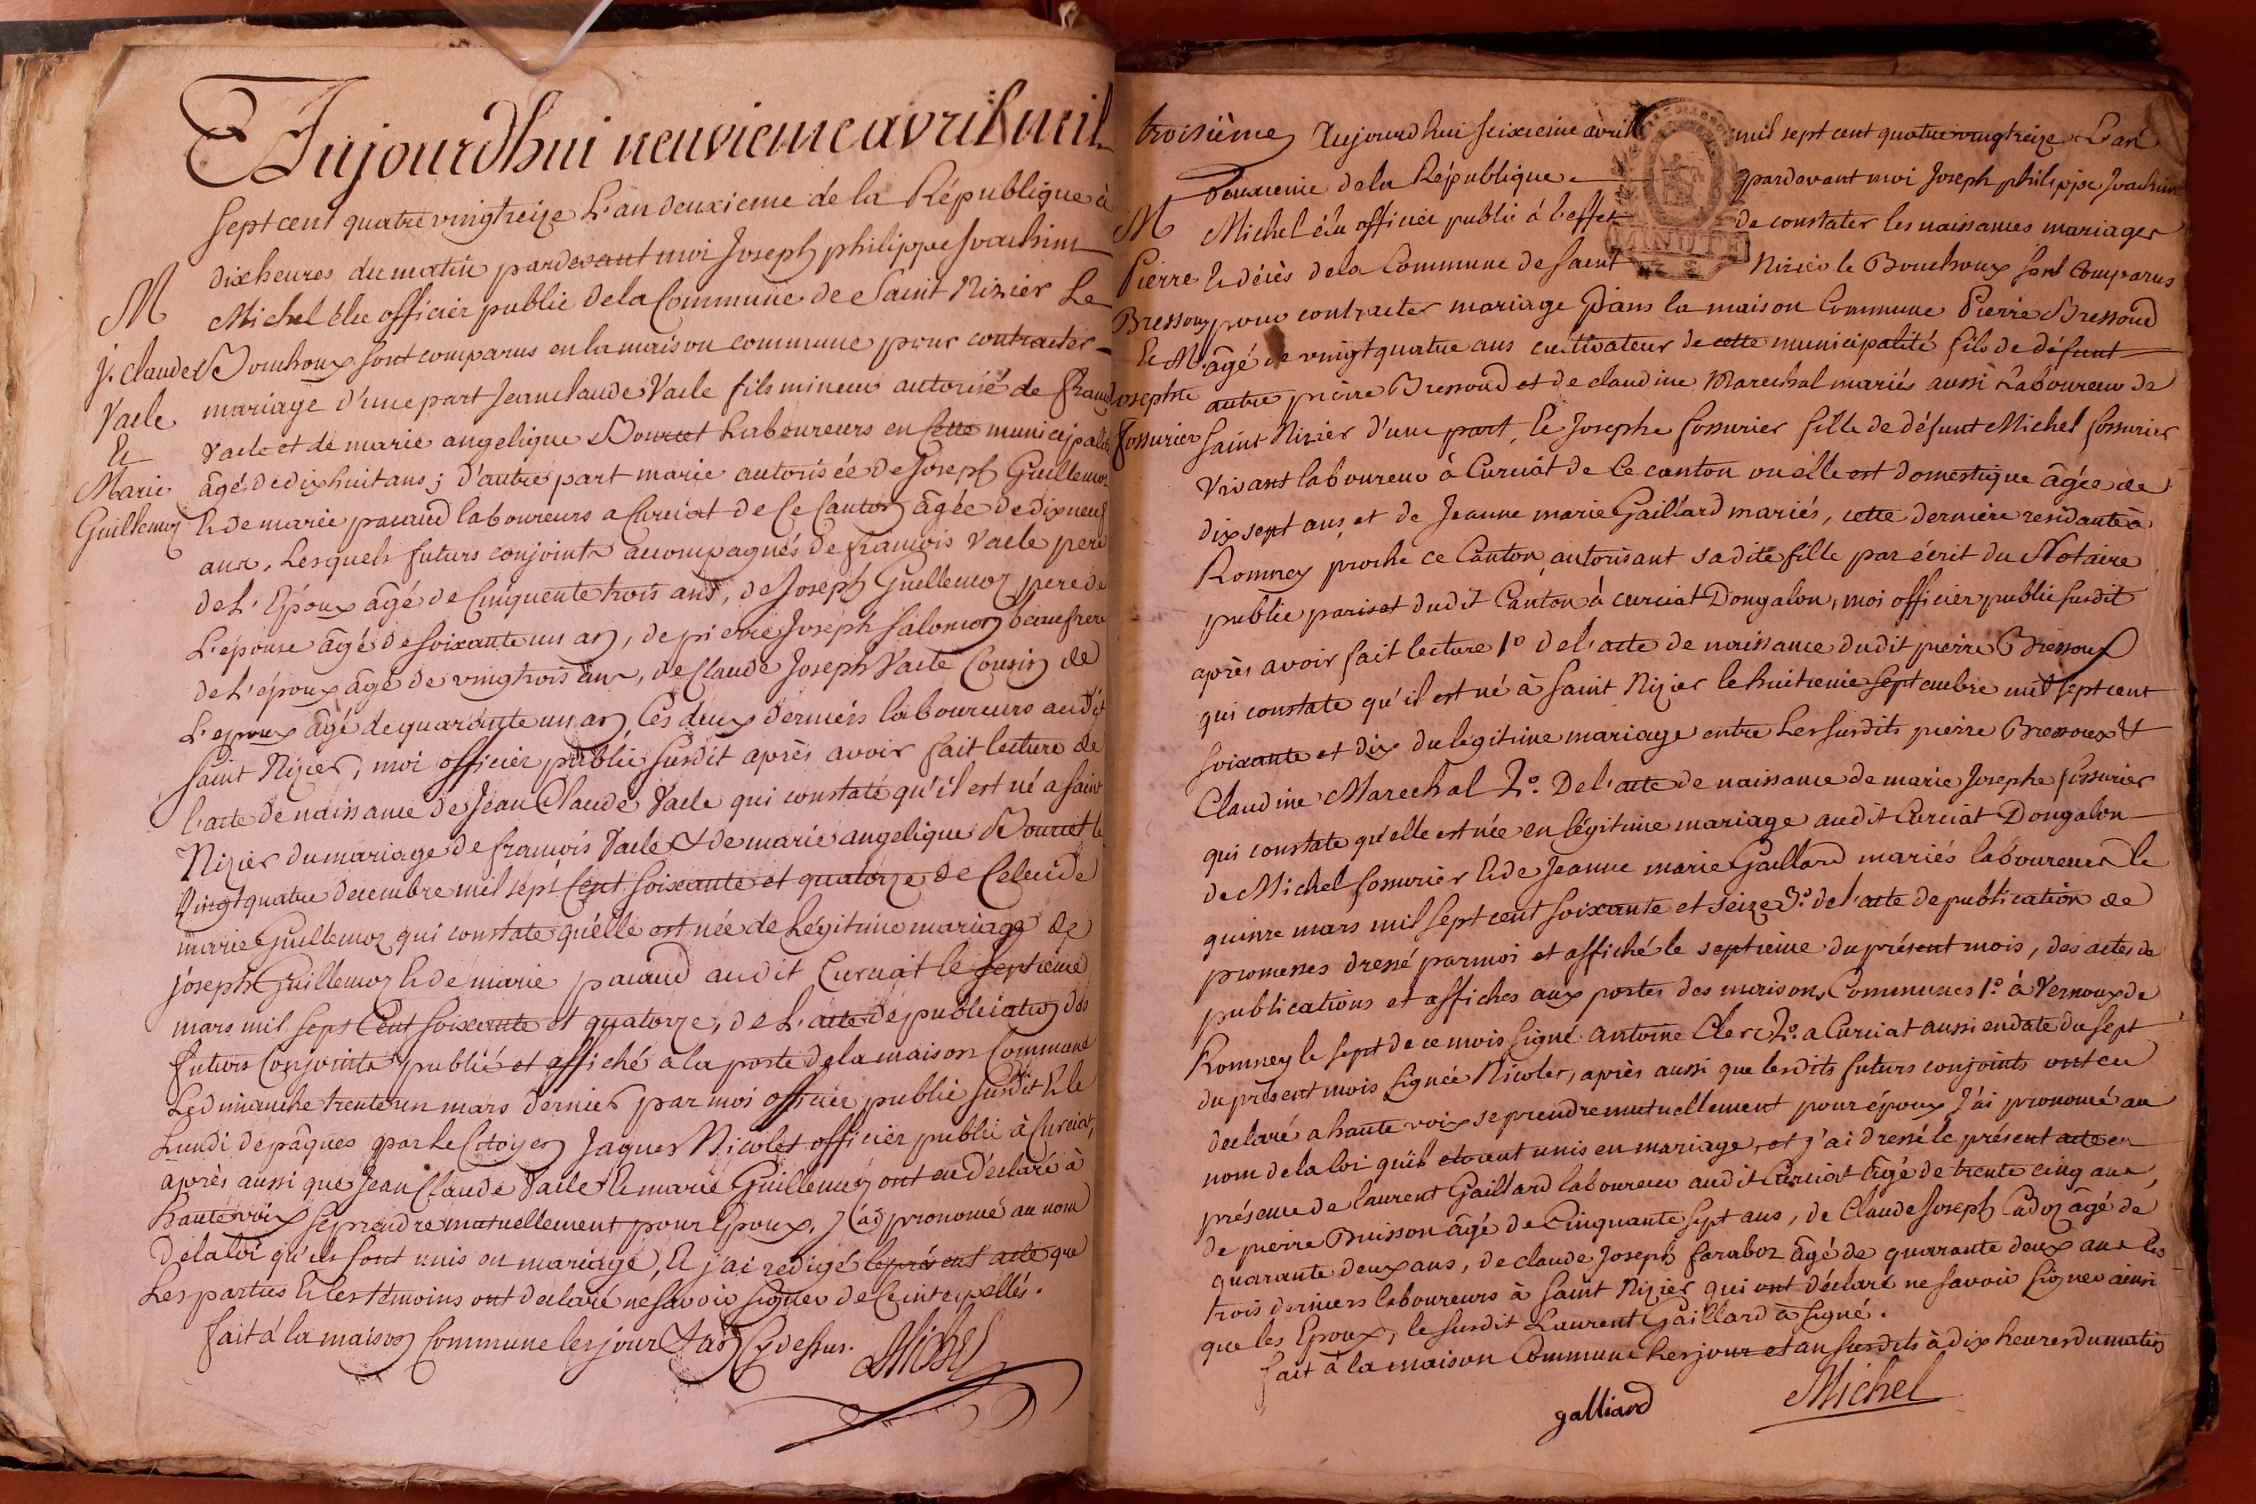 Aujourdhui neuvieme avril mil
sept cent quatre vingt reize L'an deuxieme de la République à
dix heures du matin pardevant moi Joseph philippe Joachim
Michel élu officier public de la Commune de Saint Nizier Le
Bouchoux sont comparus en la maison commune pour contracter
mariage d'une part Jean claude Vacle fils mineur autorisé de
Vacle et de marie angelique Bourcet Laboureurs en Cette municipalité
âgé de dix huit ans ; d'autre part marie autorisée de Joseph Guillemoz
& de marie pauaud laboureurs a Curciat de Ce Canton âgée de dix neuf
ans, Lesquels futurs conjoints accompagnés de francois Vacle pere
de L'Epoux âgé de Cinquente trois ans, de Joseph Guillemoz pere de
L'épouse âgé de soixante un an, de pierre Joseph Salomon beau frere
de L'époux âgé de vingt trois ans, de Claude Joseph Vacle Cousin de
L'epoux âgé de quarante un an Ces deux derniers laboureurs audit
Saint Nizier, moi officier public susdit après avoir fait lecture de
l'acte de naissance de Jean Claude Vacle qui constate qu'il est né a saint
Nizier du mariage de francois Vacle & de marie angelique Bourcet le
Vingt quatre decembre mil sept Cent soixante et quatorze de Celui de
marie Guillemoz qui constate quélle est née de Légitime mariage de
joseph Guillemoz & de marie pauaud audit Curciat le septieme
mars mil sept Cent soixante et quatorze, de L'acte de publication des
futurs Conjoints publié et affiché a la porte de la maison Commune
Le dimanche trente un mars dernier par moi officier public susdit & le
Lundi de pâques par Le Citoyen Jaques Nicolet officier public à Curciat,
après aussi que Jean Claude Vacle & marie Guillemoz ont eu déclaré à
haute voix se prendre mutuellement pour Epoux, J'ai prononcé au nom
de la loi qu'ils sont unis en mariage, & j'ai redigé le présent acte que
Les parties & les témoins ont declaré ne savoir signer de Ce interpellés.
fait à la maison Commune les jour & an Cy dessus.
Michel
M
J. claude
Vacle
&
Marie
Guillemoz
troisième Aujourdhui seixieme avril mil sept cent quatre vingt reize L'an
deuxieme de la République pardevant moi Joseph philippe Joachim
Michel élu officier public à l'effet de constater les naissances mariages
& décès de la Commune de Saint Nizier le Bouchoux sont Comparus
pour contracter mariage Dans la maison Commune Pierre Bressoud
âgé de vingt quatre ans cultivateur de cette municipalité fils de défunt
autre pierre Bressoud et de claudine Marechal mariés aussi Laboureur de
Saint Nizier d'une part, & Josephe fossurier fille de défunt Michel fossurier
Vivant laboureur à Curciat de Ce canton ou elle est domestique âgée de
dix sept ans et de Jeanne marie Gaillard mariés, cette derniere residante à
Romney proche ce Canton, autorisant sa dite fille par écrit du Notaire
public pariset dudit Canton à curciat Dongalon, moi officier public susdit
après avoir fait lecture 1° de l'acte de naissance dudit pierre Bressoux
qui constate qu'il est né à Saint Nizier le huitieme septembre mil sept cent
soixante et dix du legitime mariage entre Les susdits pierre Bressoux &
Claudine Marechal 2°. De l'acte de naissance de marie Josephe fossurier
qui constate qu'elle est née en légitime mariage audit Curciat Dongalon
de Michel fossurier & de Jeanne marie Gaillard mariés laboureurs le
quinze mars mil sept cent soixante et seize 3°. de l'acte de publication de
promesses dressé par moi et affiché le septieme du présent mois, des actes de
publications et affiches aux portes des maisons Communes 1°. à Vernoux de
Romney le sept de ce mois signé antoine Clerc 2°. a Curciat aussi en date du sept
du présent mois signée Nicolet, après aussi que lesdits futurs conjoints ont eu
declaré a haute voix se prendre mutuellement pour époux J'ai prononcé au
nom de la loi quils etoient unis en mariage, et j'ai dressé le présent acte en
présence de laurent Gaillard laboureur audit Curciat âgé de trente cinq ans,
de pierre Buisson âgé de Cinquante sept ans, de Claude Joseph Cadoz âgé de
quarante deux ans, de claude Joseph faraboz âgé de quarante deux ans les
trois derniers laboureurs à Saint Nizier qui ont déclaré ne savoir signer ainsi
que les Epoux, le susdit Laurent Gaillard a signé.
fait à la maison Commune les jour et an susdits à dix heures du matin
galliard
Michel
M
Pierre
Bressoux
& M.
Josephte
fossurier
MINUTE